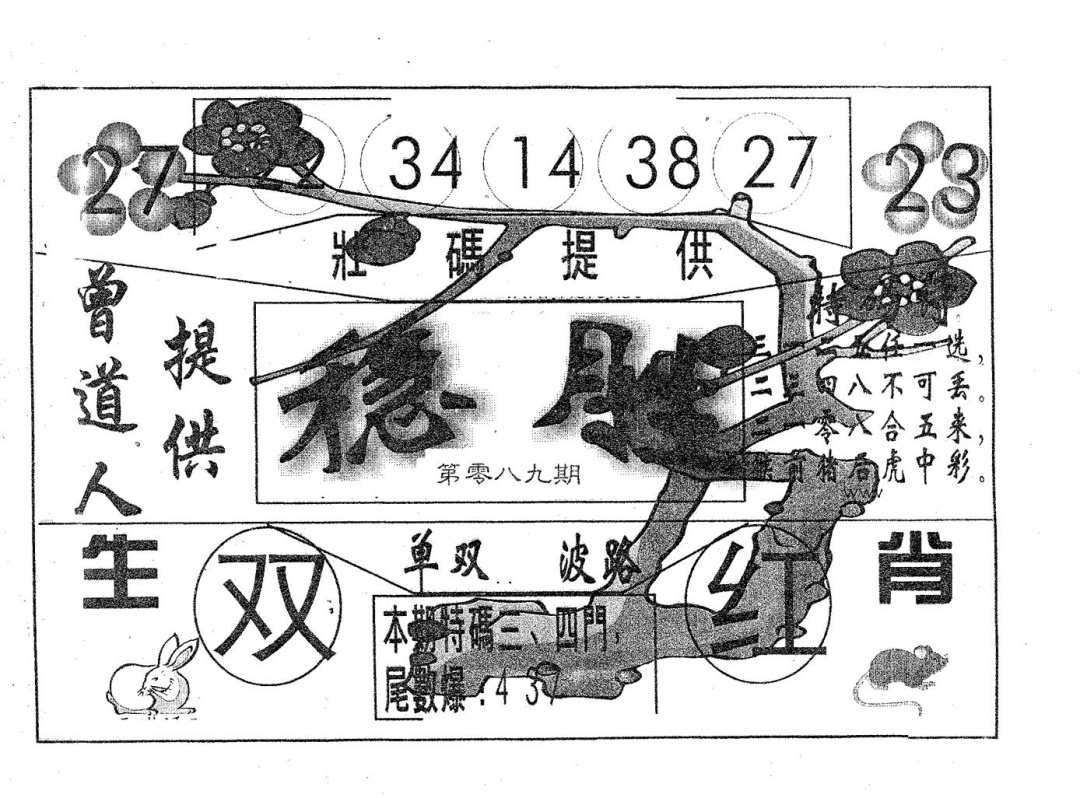 27 34 14 38 27 23
壯碼提供
曾道人
提供
穩勝
第零八九期
特
五任一选,
二三四八不可丢。
零八合五来,
前猪后虎中彩。
www
生肖
单双 波路
双 红
本期特碼三、四門,
尾數爆:4 3